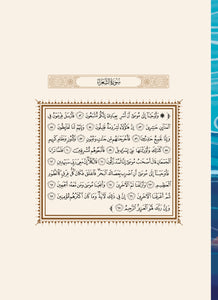 سورة الشعراء
وأوحينا إلى موسى أن أسر بعبادي إنكم متبعون ٥٢ فأرسل فرعون في
المدائن حاشرين ٥٣ إن هؤلاء لشرذمة قليلون ٥٤ وإنهم لنا لغائظون ٥٥
وإنا لجميع حاذرون ٥٦ فأخرجناهم من جنات وعيون ٥٧ وكنوز ومقام كريم
٥٨ كذلك وأورثناها بني إسرائيل ٥٩ فأتبعوهم مشرقين ٦٠ فلما تراءا
الجمعان قال أصحاب موسى إنا لمدركون ٦١ قال كلا إن معي ربي سيهدين
٦٢ فأوحينا إلى موسى أن اضرب بعصاك البحر فانفلق فكان كل فرق كالطود
العظيم ٦٣ وأزلفنا ثم الآخرين ٦٤ وأنجينا موسى ومن معه أجمعين ٦٥
ثم أغرقنا الآخرين ٦٦ إن في ذلك لآية وما كان أكثرهم مؤمنين ٦٧
وإن ربك لهو العزيز الرحيم ٦٨